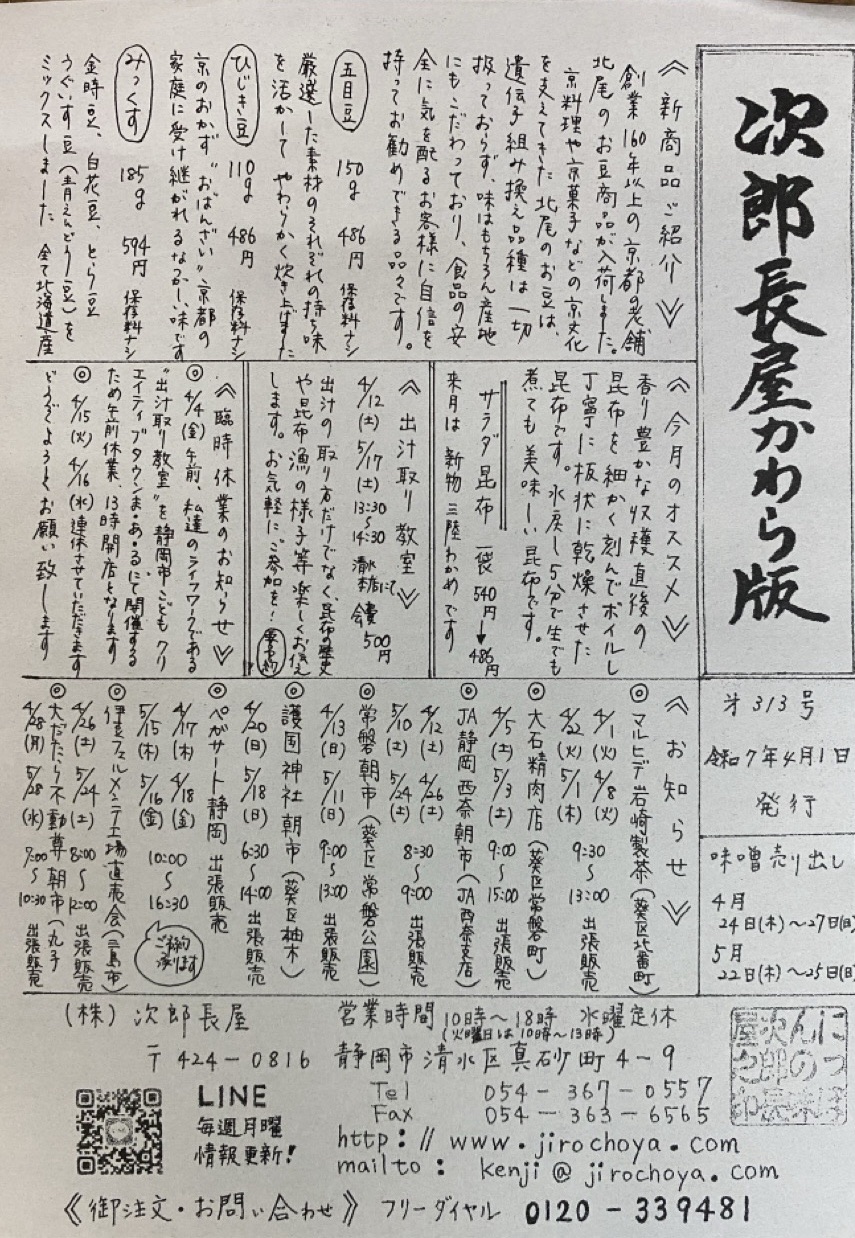 次郎長屋かわら版
才313号
令和7年4月1日
発行
味噌売り出し
4月
24日(木)〜27日(日)
5月
22日(木)〜25日(日)
《新商品ご紹介》
創業160年以上の京都の老舗
北尾のお豆商品が入荷しました。
京料理や京菓子などの京文化
を支えてきた北尾のお豆は、
遺伝子組み換え品種は一切
扱っておらず、味はもちろん産地
にもこだわっており、食品の安
全に気を配るお客様に自信を
持ってお勧めできる品々です。
五目豆 150g 486円 保存料ナシ
厳選した素材のそれぞれの持ち味
を活かして やわらかく炊き上げました
ひじき豆 110g 486円 保存料ナシ
京のおかず“おばんざい”京都の
家庭に受け継がれるなつかしい味です
みっくす 185g 594円 保存料ナシ
金時豆、白花豆、とら豆
うぐいす豆(青えんどう豆)を
ミックスしました 全て北海道産
《今月のオススメ》
香り豊かな収穫直後の
昆布を細かく刻んでボイルし
丁寧に板状に乾燥させた
昆布です。水戻し5分で生でも
煮ても美味しい昆布です。
サラダ昆布 一袋 540円→486円
来月は 新物 三陸わかめです
《出汁取り教室》
4/12(土) 5/17(土) 13:30〜14:30 清水本店にて 会費500円
出汁の取り方だけでなく、昆布の歴史
や昆布漁の様子等楽しくお伝え
します。お気軽にご参加を! 要予約
《臨時休業のお知らせ》
◎4/4(金)午前、私達のライフワークである
“出汁取り教室”を静岡市こどもクリ
エイティブタウンま・あ・るにて開催する
ため午前休業、13時開店となります
◎4/15(火) 4/16(水)連休させていただきます
どうぞよろしくお願い致します
《お知らせ》
◎マルヒデ岩崎製茶(葵区北番町)
4/1(火) 4/8(火)
4/22(火) 5/1(木) 9:30〜13:00 出張販売
◎大石精肉店(葵区常磐町)
4/5(土) 5/3(土) 9:00〜15:00 出張販売
◎JA静岡西奈朝市(JA西奈支店)
4/12(土) 4/26(土)
5/10(土) 5/24(土) 8:30〜9:00 出張販売
◎常磐朝市(葵区常磐公園)
4/13(日) 5/11(日) 9:00〜13:00 出張販売
◎護国神社朝市(葵区柚木)
4/20(日) 5/18(日) 6:30〜14:00 出張販売
◎ペガサート静岡 出張販売
4/17(木) 4/18(金)
5/15(木) 5/16(金) 10:00〜16:30 ご予約承ります
◎伊豆フェルメンテ工場直売会(三島市)
4/26(土) 5/24(土) 8:00〜12:00 出張販売
◎大だたら不動尊朝市(丸子)
4/28(月) 5/28(水) 7:00〜10:30 出張販売
(株)次郎長屋 営業時間 10時〜18時 水曜定休
(火曜日は10時〜13時)
〒424-0816 静岡市清水区真砂町4-9
Tel 054-367-0557
Fax 054-363-6565
http://www.jirochoya.com
mailto: kenji@jirochoya.com
LINE
毎週月曜
情報更新!
にっぽ
んの味
次郎長
屋之印
《御注文・お問い合わせ》 フリーダイヤル 0120-339481